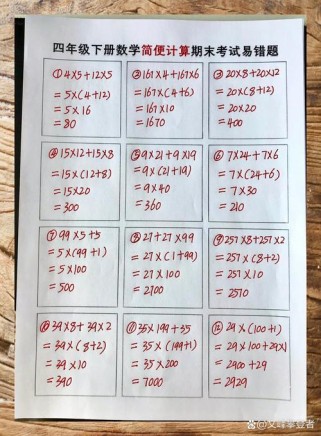 四年级下册数学简便计算期末考试易错题
① 4×5+12×5
=5×(4+12)
=5×16
=80
② 167×4+167×6
=167×(4+6)
=167×10
=1670
③ 20×8+20×12
=20×(8+12)
=20×20
=400
④ 15×12+15×8
=15×(12+8)
=15×20
=300
⑤ 9×21+9×19
=9×(21+19)
=9×40
=360
⑥ 7×24+7×6
=7×(24+6)
=7×30
=210
⑦ 99×5+5
=5×(99+1)
=5×100
=500
⑧ 27+27×99
=27×(1+99)
=27×100
=2700
⑨ 257×8+257×2
=257×(8+2)
=257×10
=2570
⑩ 39×8+39×2
=39×(8+2)
=39×10
=390
⑪ 35×199+35
=35×(199+1)
=35×200
=7000
⑫ 29×(100+1)
=29×100+29×1
=2900+29
=2929